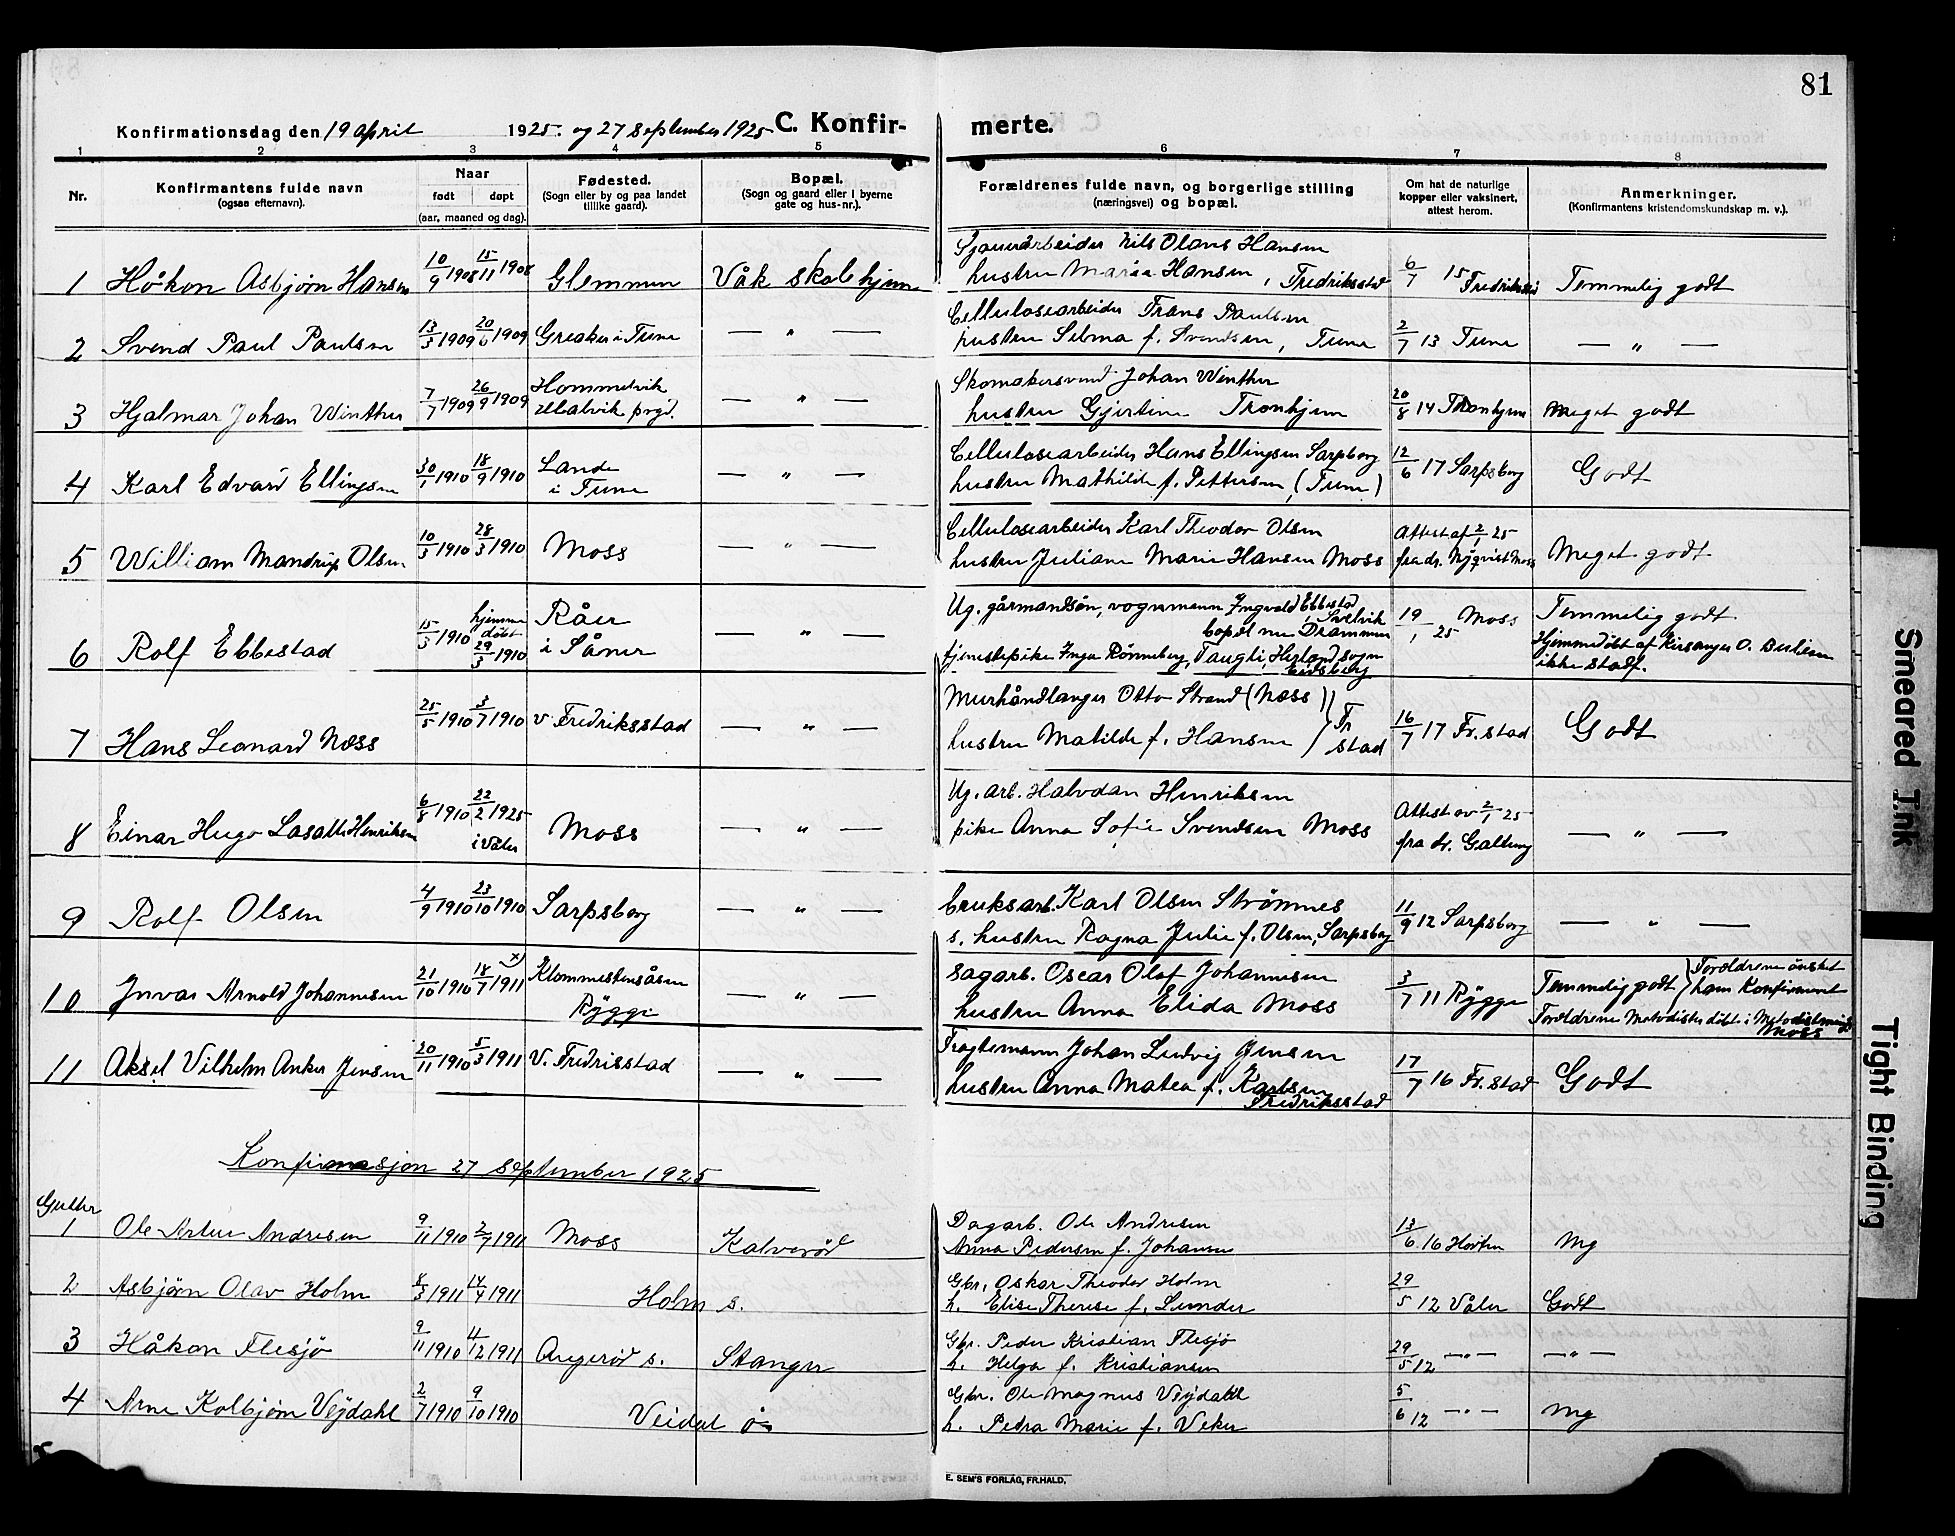 81
Konfirmationsdag den 19 april 1925. og 27 September 1925 C. Konfirmerte.
1 2 3 4 5 6 7 8
Nr.
Konfirmantens fulde navn
(ogsaa efternavn).
Naar
født døpt
(aar, maaned og dag).
Fødested.
(Sogn eller by og paa landet
tillike gaard).
Bopæl.
(Sogn og gaard eller i byerne
gate og hus-nr.).
Forældrenes fulde navn, og borgerlige stilling
(næringsvei) og bopæl.
Om hat de naturlige
kopper eller vaksinert,
attest herom.
Anmerkninger.
(Konfirmantens kristendomskundskap m. v.).
1 Håkon Asbjørn Hansen 10/9 1908 15/11 1908 Glemmen Våk skolehjem
Sjauerarbeider Nils Olaus Hansen
hustru Maria Hansen, Fredriksstad
6/7 15 Fredriksstad Temmelig godt
2 Svend Paul Paulsen 13/3 1909 20/6 1909 Greaker i Tune — " —
Cellulosearbeider Frans Paulsen
hustru Selma f. Svendsen, Tune
2/7 13 Tune — " —
3 Hjalmar Johan Winther 7/7 1909 26/9 1909 Hommelvik
Malvik prgd. — " —
Skomakersvend Johan Winther
hustru Gjertine Tronhjem
20/8 14 Tronhjem Meget godt
4 Karl Edvard Ellingsen 30/1 1910 18/9 1910 Lande
i Tune — " —
Cellulosearbeider Hans Ellingsen Sarpsborg
hustru Mathilde f. Pettersen, (Tune)
12/6 17 Sarpsborg Godt
5 William Mandrup Olsen 10/3 1910 28/3 1910 Moss — " —
Cellulosearbeider Karl Theodor Olsen
hustru Juliane Marie Hansen Moss
Attest af 2/1 25
fra dr. Nyqvist Moss Meget godt
6 Rolf Ebbestad 15/3 1910 hjemme
døbt
29/3 1910 Råer
i Såner — " —
Ug. gårmandsøn, vognmann Yngvald Ebbestad
bopæl nu Svelvik Drammen
tjenestepike Inga Rønneberg, Taugli, Herland sogn
Eidsberg
19/1 25 Moss Temmelig godt
Hjemmedøbt af Kirsanger O.
ikke stadf.
7 Hans Leonard Næss 25/5 1910 3/7 1910 v Fredriksstad — " —
Murhåndlanger Otto Strand (Næss)
hustru Matilde f. Hansen Fr
stad
16/7 17 Fr.stad Godt
8 Einar Hugo Lasalle Henriksen 6/8 1910 22/2 1925
i Våler Moss — " —
Ug. arb. Halvdan Henriksen
pike Anna Sofie Svendsen Moss
Attest av 2/1 25
fra dr. Galtung — " —
9 Rolf Olsen 4/9 1910 23/10 1910 Sarpsborg — " —
bruksarb. Karl Olsen Strømnes
s. hustru Ragna Julie f. Olsen, Sarpsborg
11/9 12 Sarpsborg — " —
10 Invar Arnold Johannesen 21/10 1910 18/7 1911 x) Klommestensåsen
Rygge — " —
Sagarb. Oscar Olaf Johannesen
hustru Anna Elida Moss
3/7 11 Rygge Temmelig godt Forældrene ønsket
ham Konfirmert
Forældrene Metodister døbt i
Moss
11 Aksel Vilhelm Anker Jensen 20/11 1910 5/3 1911 V. Fredrisstad — " —
Fragtemann Johan Ludvig Jensen
hustru Anna Matea f. Karlsen
Fredriksstad
17/7 16 Fr.stad Godt
Konfirmasjon 27 September 1925
Gutter
1 Ole Artur Andresen 9/11 1910 2/7 1911 Moss Kalverød
Dagarb. Ole Andresen
Anna Pedersen f. Johansen
13/6 16 Horten Mg
2 Asbjørn Olav Holm 8/3 1911 14/4 1911 Holm s.
Gbr. Oskar Theodor Holm
h. Elise Therese f. Lunder
29/5 12 Våler Godt
3 Håkon Flesjø 9/11 1910 4/12 1911 Augerød s. Stanger
Gbr. Peder Kristian Flesjø
h. Helga f. Kristiansen
29/5 12 — " — — " —
4 Arne Kolbjørn Vejdahl 2/7 1910 9/10 1910 Veidal ø.
Gbr. Ole Magnus Vejdahl
h. Petra Marie f. Veker
5/6 12 — " — Mg
E. SEM'S FORLAG, FR.HALD.
Smeared Ink
Tight Binding